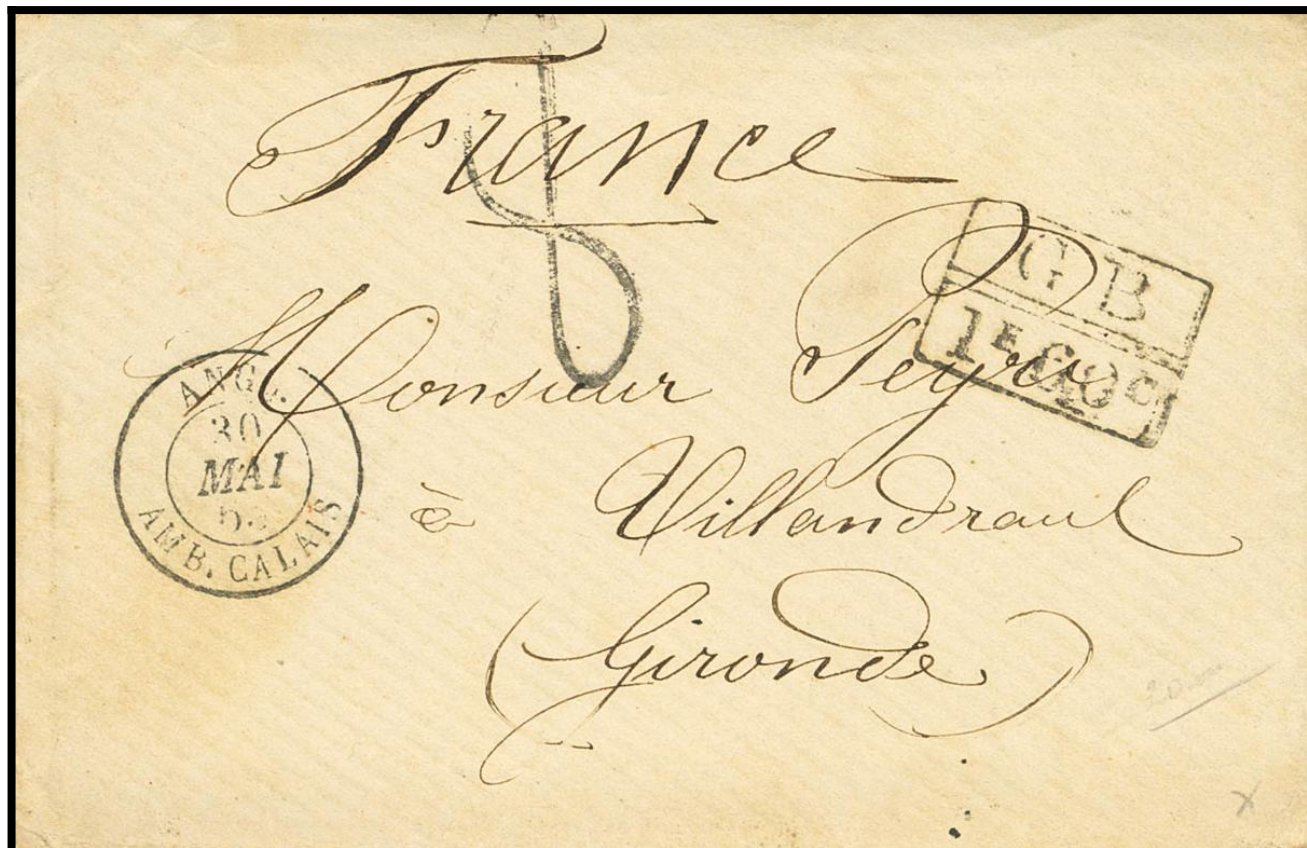 France
8
G B
1F 60c
Monsieur Peyri
ANGL.
30
MAI
AMB. CALAIS
à Villandraut
(Gironde)